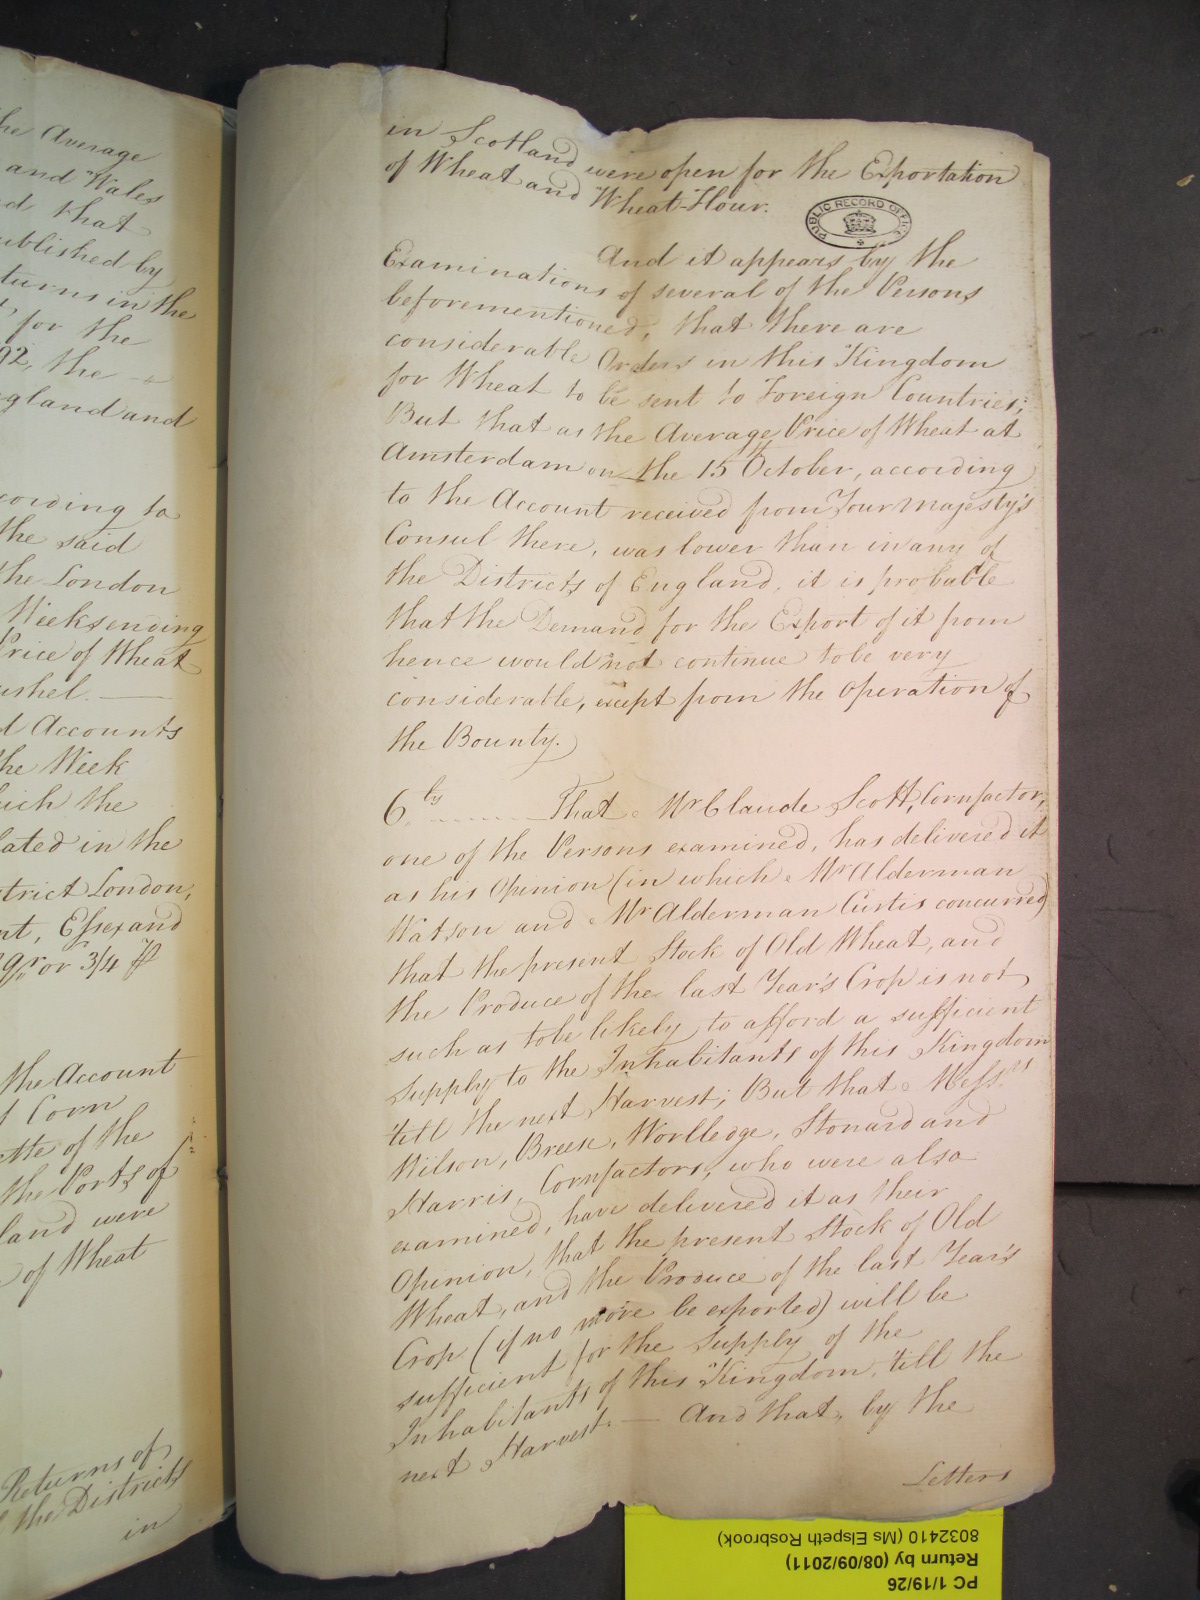 he Average
and Wales
d that
ublished by
turns in the
for the
92, the
gland and
cording to
the said
the London
Weeks ending
Price of Wheat
ushel.
d Accounts
the Week
hich the
lated in the
strict London,
nt, Essex and
9 qr or 3/4 ⅌
the Account
f Corn
ette of the
the Ports of
land were
of Wheat
Returns of
the Districts
in
in Scotland were open for the Exportation
of Wheat and Wheat-Flour.
PUBLIC RECORD OFFICE
And it appears by the
Examinations of several of the Persons
beforementioned, that there are
considerable Orders in this Kingdom
for Wheat to be sent to Foreign Countries;
But that as the Average Price of Wheat at
Amsterdam on the 15th October, according
to the Account received from Your Majesty's
Consul there, was lower than in any of
the Districts of England, it is probable
that the Demand for the Export of it from
hence would not continue to be very
considerable, except from the Operation of
the Bounty.
6.ly That Mr Claude Scott, Cornfactor,
one of the Persons examined, has delivered it
as his Opinion (in which Mr Alderman
Watson and Mr Alderman Curtis concurred)
that the present Stock of Old Wheat, and
the Produce of the last Year's Crop is not
such as to be likely to afford a sufficient
Supply to the Inhabitants of this Kingdom
'till the next Harvest; But that Messrs
Wilson, Breese, Worlledge, Stonard and
Harris, Cornfactors, who were also
examined, have delivered it as their
Opinion, that the present Stock of Old
Wheat, and the Produce of the last Year's
Crop (if no more be exported) will be
sufficient for the Supply of the
Inhabitants of this Kingdom, 'till the
next Harvest. — And that, by the
Letters
PC 1/19/26
Return by (08/09/2011)
8032410 (Ms Elspeth Rosbrook)